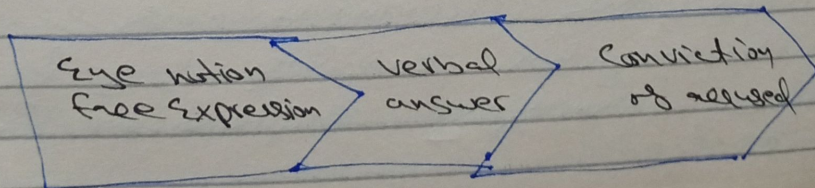 Eye motion
face Expression
verbal
answer
Conviction
of accused